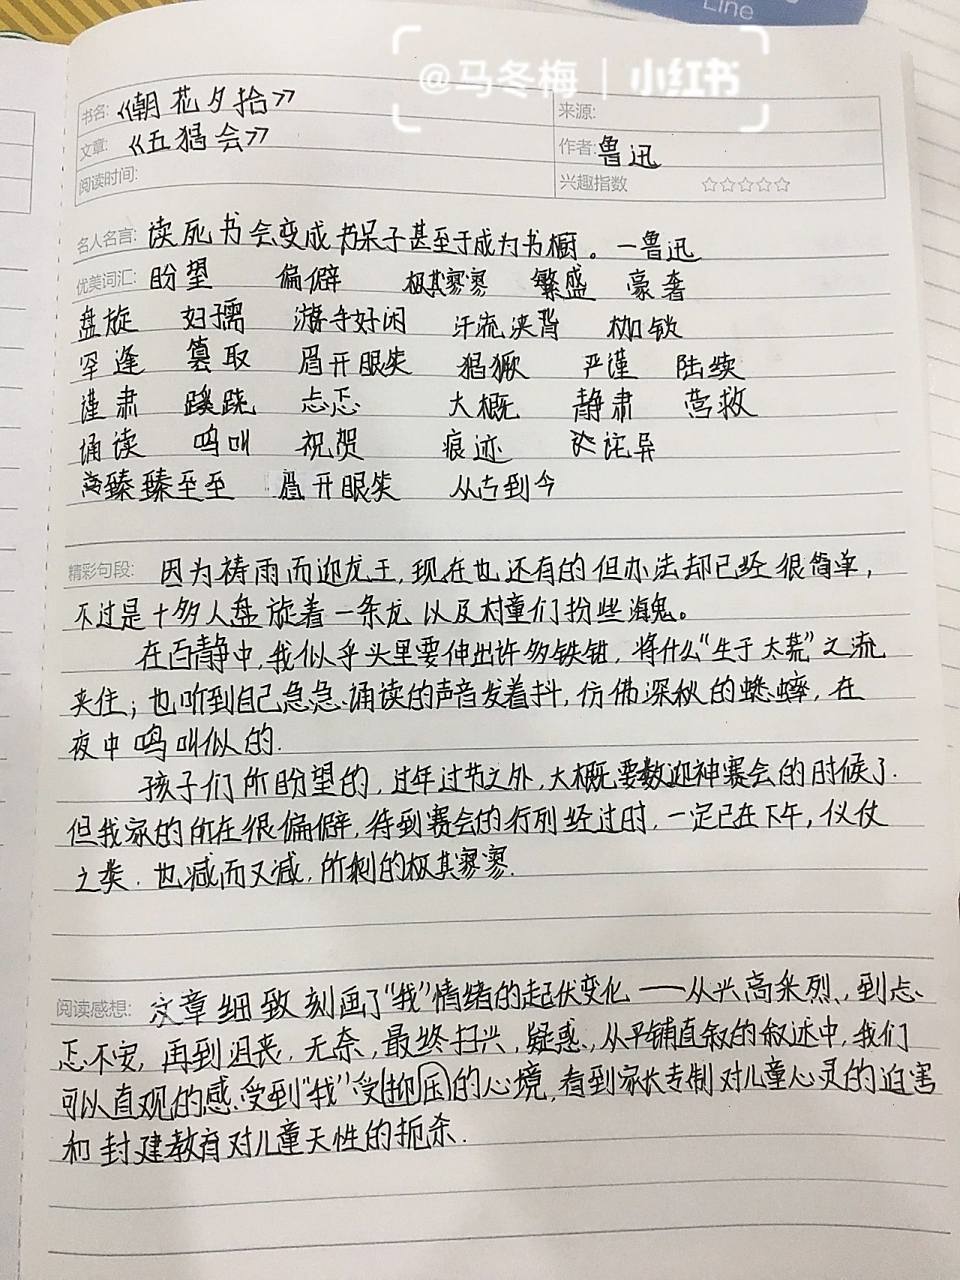 Line
@马冬梅 | 小红书
书名: 《朝花夕拾》 来源:
文章: 《五猖会》 作者: 鲁迅
阅读时间: 兴趣指数 ☆☆☆☆☆
名人名言: 读死书会变成书呆子甚至于成为书橱。—鲁迅
优美词汇: 盼望 偏僻 极其寥寥 繁盛 豪奢
盘旋 妇孺 游手好闲 汗流浃背 枷锁
罕逢 篡取 眉开眼笑 猖獗 严谨 陆续
谨肃 蹊跷 忐忑 大概 静肃 营救
诵读 鸣叫 祝贺 痕迹 诧异
臻臻至至 眉开眼笑 从古到今
精彩句段: 因为祷雨而迎龙王,现在也还有的但办法却已经很简单,
不过是十多人盘旋着一条龙 以及村童们扮些海鬼。
在百静中,我似乎头里要伸出许多铁钳,将什么“生于太荒”之流
夹住;也听到自己急急诵读的声音发着抖,仿佛深秋的蟋蟀,在
夜中鸣叫似的.
孩子们所盼望的,过年过节之外,大概要数迎神赛会的时候了.
但我家的所在很偏僻,待到赛会的行列经过时,一定已在下午,仪仗
之类.也减而又减,所剩的极其寥寥.
阅读感想: 文章细致刻画了“我”情绪的起伏变化——从兴高采烈、到忐
忑不安,再到沮丧、无奈,最终扫兴,疑惑、从平铺直叙的叙述中,我们
可以直观的感受到“我”受抑压的心境,看到家长专制对儿童心灵的迫害
和封建教育对儿童天性的扼杀.